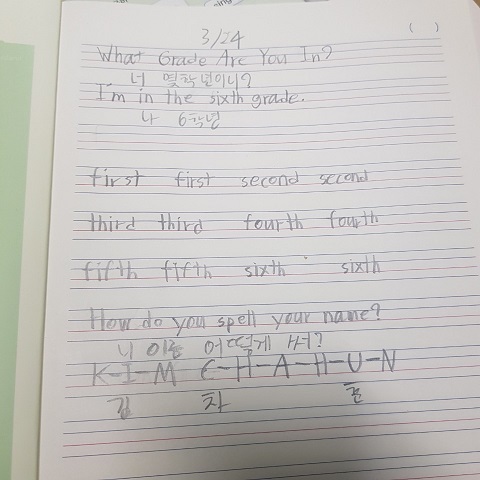 ( )
3/24
What Grade Are You In?
너 몇학년이니?
I'm in the sixth grade.
나 6학년
first first second second
third third fourth fourth
fifth fifth sixth sixth
How do you spell your name?
니 이름 어떻게 써?
K-I-M C-H-A-H-U-N
김 차 훈